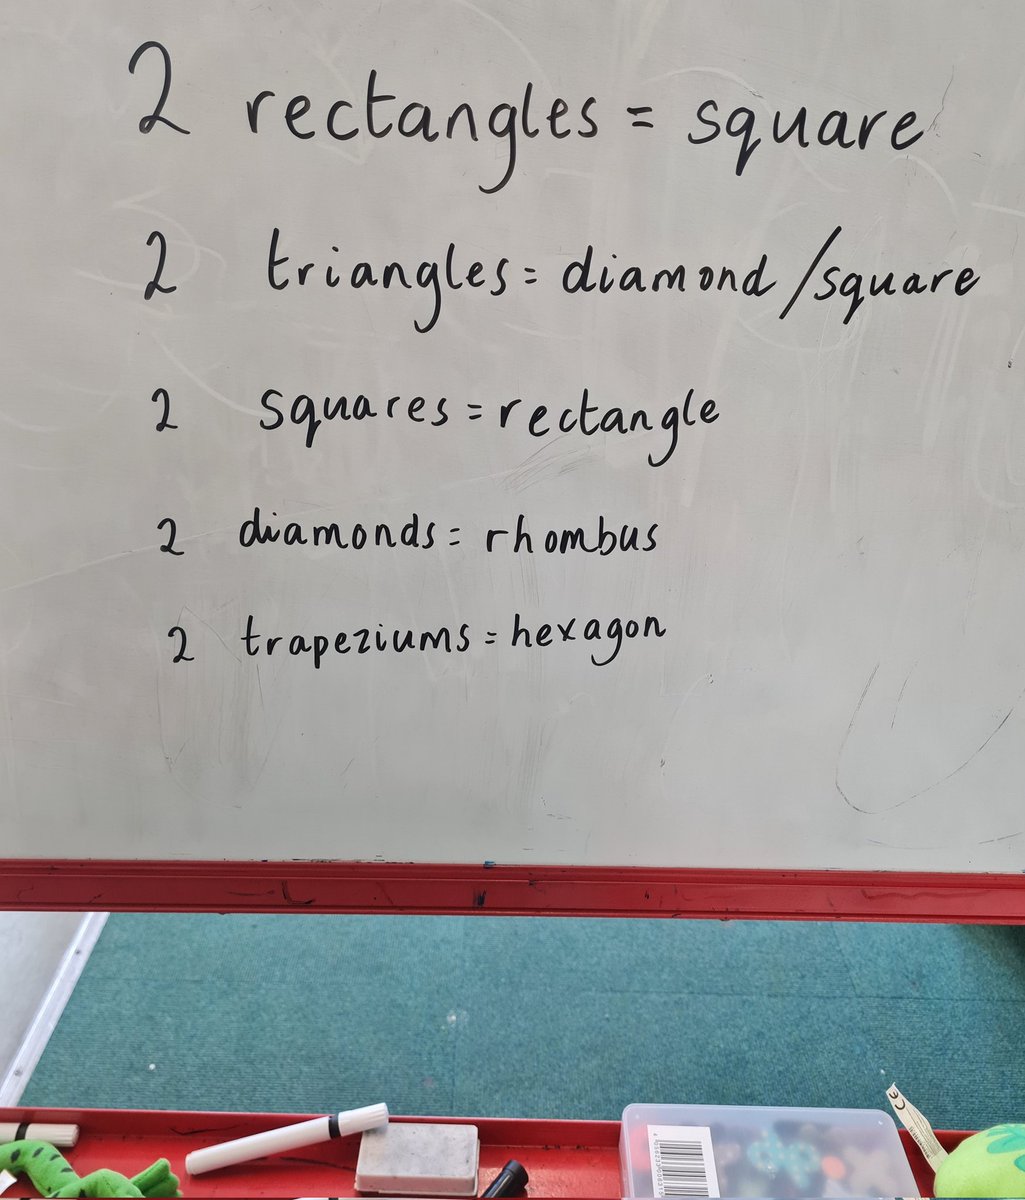 2 rectangles = square
2 triangles = diamond /square
2 squares = rectangle
2 diamonds = rhombus
2 trapeziums = hexagon
CE